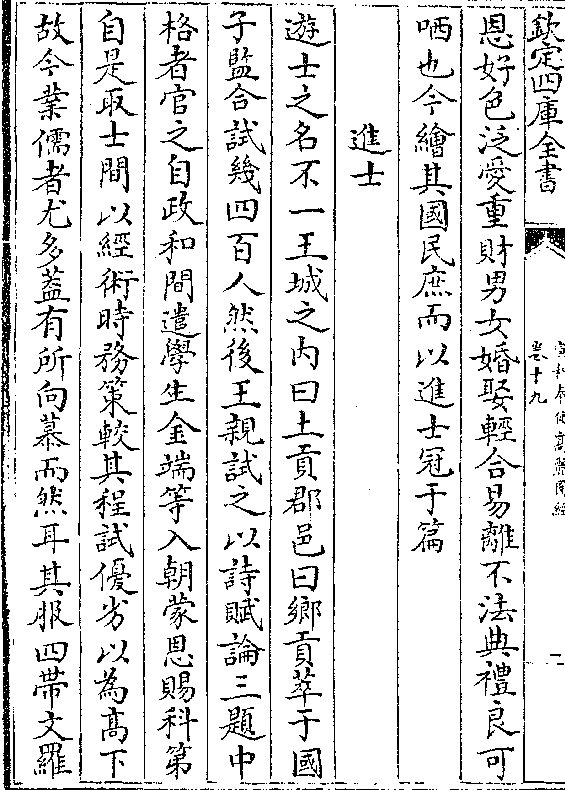 欽定四庫全書
宣和奉使高麗圖經
卷十九
二
恩好色泛愛重財男女婚娶輕合易離不法典禮良可
哂也今繪其國民庶而以進士冠于篇
進士
遊士之名不一王城之内曰土貢郡邑曰鄉貢萃于國
子監合試幾四百人然後王親試之以詩賦論三題中
格者官之自政和間遣學生金端等入朝蒙恩賜科第
自是取士間以經術時務策較其程試優劣以為髙下
故今業儒者尤多葢有所向慕而然耳其服四帶文羅